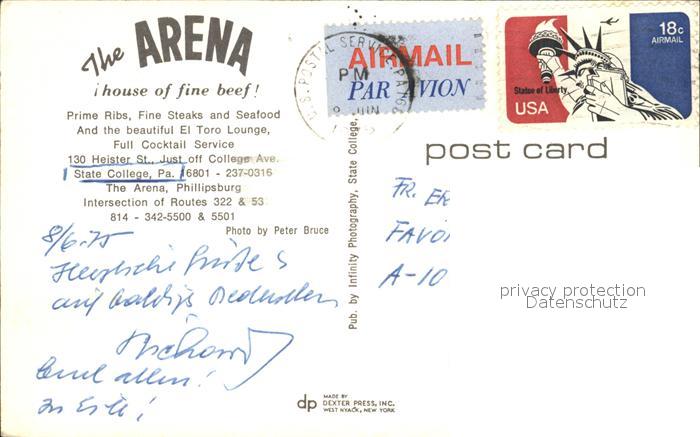 The ARENA
¡ house of fine beef!
Prime Ribs, Fine Steaks and Seafood
And the beautiful El Toro Lounge,
Full Cocktail Service
130 Heister St., Just off College Ave.
State College, Pa. 16801 - 237-0316
The Arena, Phillipsburg
Intersection of Routes 322 & 53
814 - 342-5500 & 5501
Photo by Peter Bruce
8/6.75
Herzliche Grüße &
auf baldiges
Richard
allen!
In Eile!
Pub. by Infinity Photography, State College,
U.S. POSTAL SERVICE PA
PM
JUN
AIRMAIL
PAR AVION
18c
AIRMAIL
Statue of Liberty
USA
post card
FR. ER
FAVO
A-10
privacy protection
Datenschutz
dp
MADE BY
DEXTER PRESS, INC.
WEST NYACK, NEW YORK